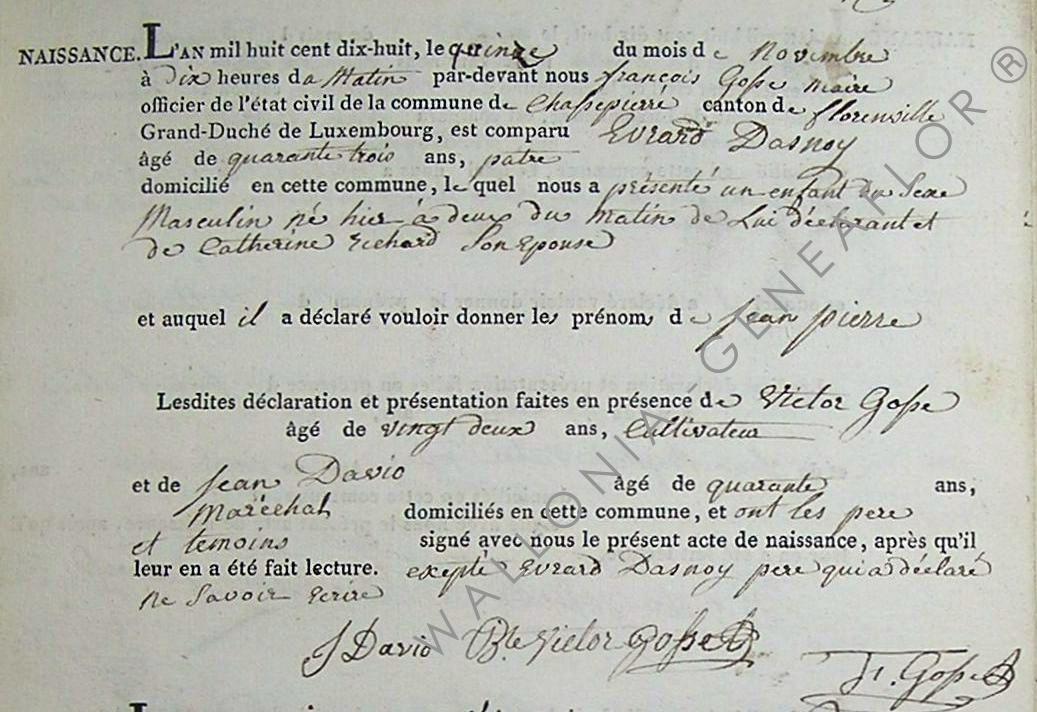 NAISSANCE. L'AN mil huit cent dix-huit, le quinze du mois de Novembre
à Dix heures da Matin par-devant nous françois Gosse maire
officier de l'état civil de la commune de Chassepierre canton de florenville
Grand-Duché de Luxembourg, est comparu Evrard Dasnoy
âgé de quarante trois ans, patre
domicilié en cette commune, le quel nous a présenté un enfant du Sexe
Masculin né hier à deux du matin de Lui déclarant et
de Catherine Richard Son Epouse
et auquel il a déclaré vouloir donner les prénoms de Jean pierre
Lesdites déclaration et présentation faites en présence de Victor Gosse
âgé de vingt deux ans, Cultivateur
et de Jean David âgé de quarante ans,
Maréchal domiciliés en cette commune, et ont les pere
et temoins signé avec nous le présent acte de naissance, après qu'il
leur en a été fait lecture. exepté Evrard Dasnoy pere qui a déclaré
ne Savoir Ecrire
J David Bte Victor Gosse
F. Gosse
WALLONIA GENEAFLOR ®